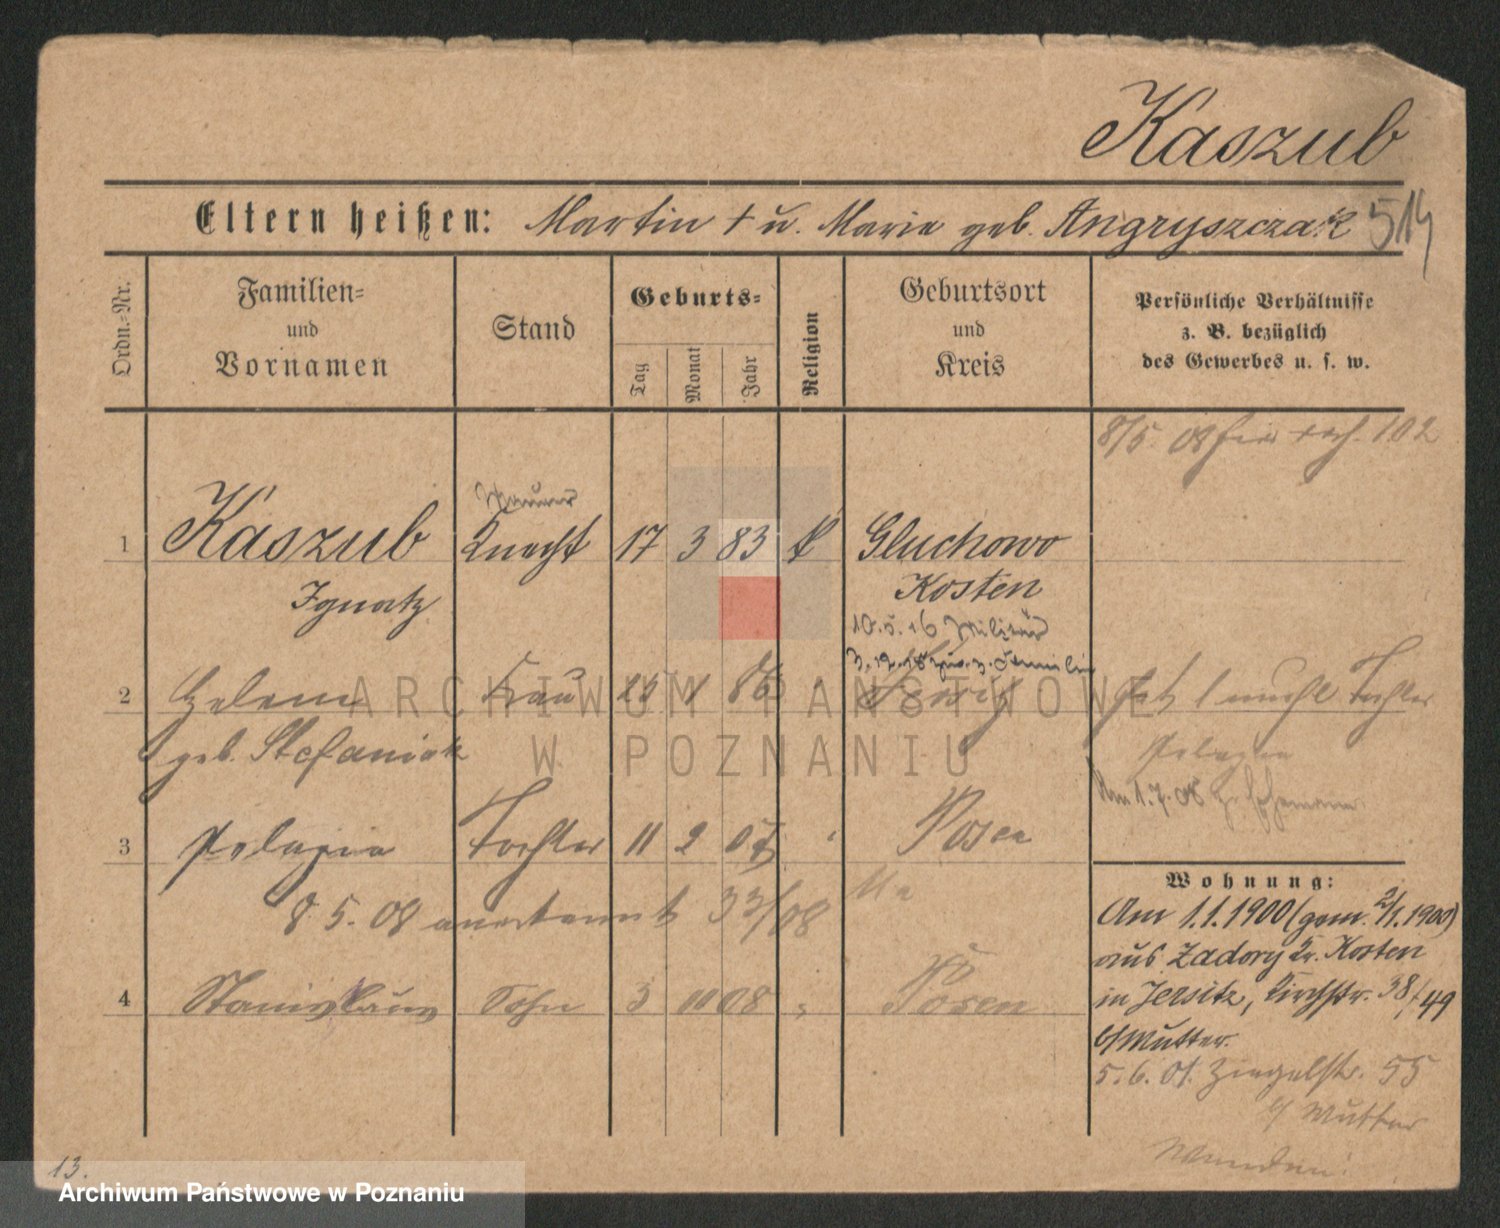 Kaszub
Eltern heißen: Martin † u. Marie geb. Angryszczak 514
Ordn.-Nr.
Familien-
und
Vornamen
Stand
Geburts-
Tag
Monat
Jahr
Religion
Geburtsort
und
Kreis
Persönliche Verhältnisse
z. B. bezüglich
des Gewerbes u. s. w.
8/5. 08 102
Maurer
1 Kaszub Knecht 17 3 83 k Gluchowo
Ignatz Kosten
10.5.16 Militär
3.12.18 z. Familie
2 Helene Frau 1 86 hat 1 Tochter
geb. Stefaniak Pelagia
Am 1.7.08
3 Pelagia Tochter 11 2 07 Posen
8.5.08 anerkannt 33/08
4 Stanislaus Sohn 3 11 08 Posen
Wohnung:
Am 1.1.1900 (gem. 2/1.1900)
aus Zadory Kr. Kosten
in Jersitz, Kirchstr. 38/49
b/Mutter.
5.6.01. Ziegelstr. 55
b/ Mutter
13.
ARCHIWUM PAŃSTWOWE
W POZNANIU
Archiwum Państwowe w Poznaniu